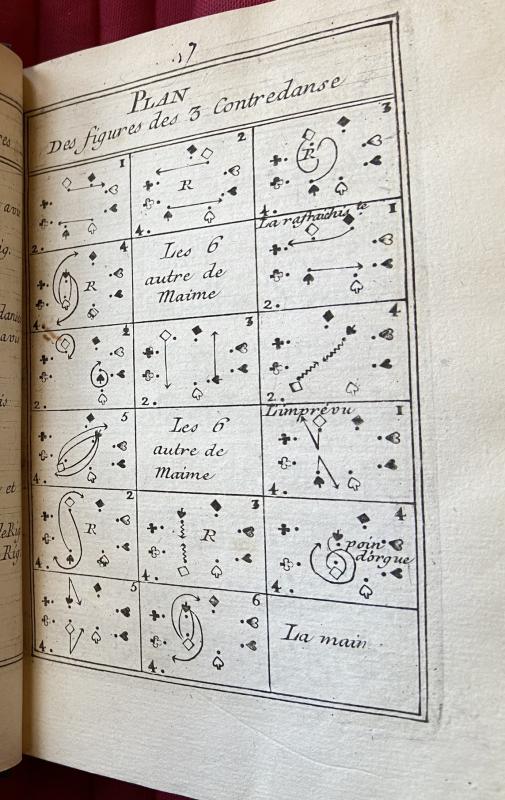 37
PLAN
Des figures des 3 Contredanse
1
2.
2
R
4.
3
R
4.
4
R
4.
Les 6
autre de
Maime
La rafraichis te
1
2.
2
2.
3
2.
4
2.
5
4.
Les 6
autre de
Maime
L'imprévu
1
4.
2
R
4.
3
R
4.
4
poin
d'orgue
4.
5
4.
6
4.
La main